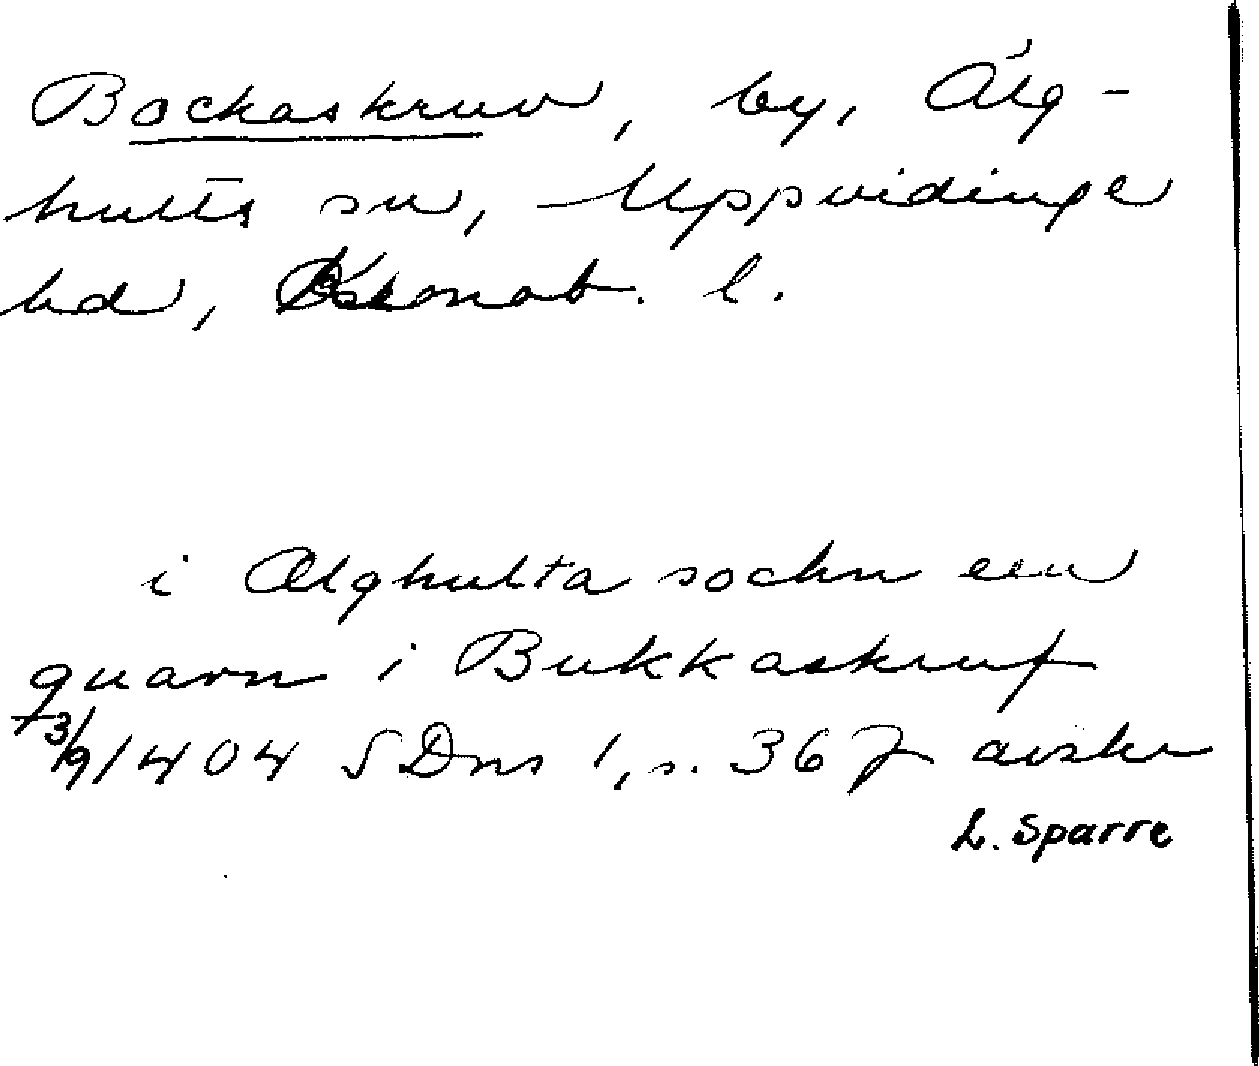 Bockaskruv, by, Älg-
hults sn, Uppvidinge
hd, Kronob. l.
i Ælghulta sochn een
quarn i Bukkaskruf
3/9 1404 SDns 1, s. 367 avskr
L. Sparre